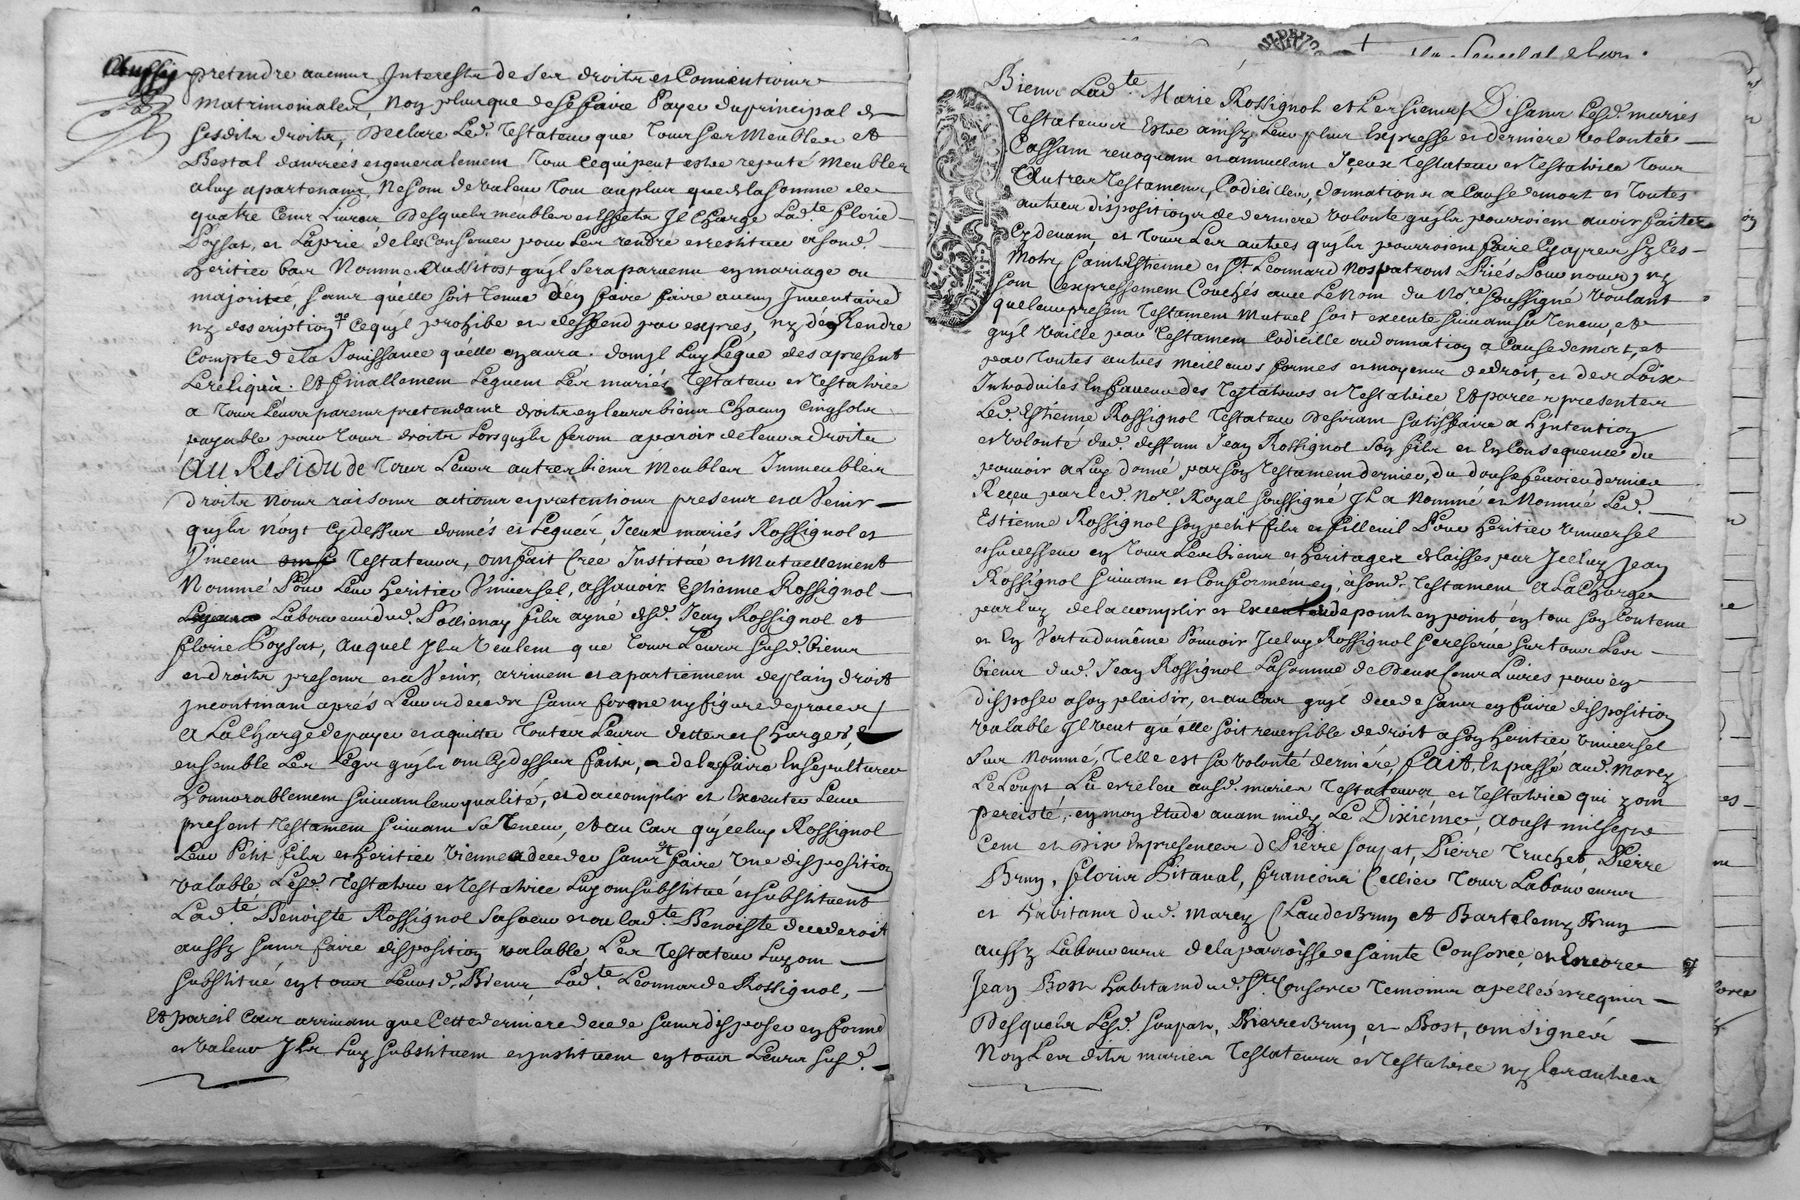 pretendre aucuns Interests de ses droits et Conventions
matrimoniales, Non plus que de se faire Payer du principal de
sesdits droits, Declare Led. Testateur que Tous ses Meubles et
Bestal danrrées et generalement Tout ce qui peut estre reputé Meubles
a luy apartenans, Ne sont de valeur Tout au plus que de la somme de
quatre Cens Livres Desquels meubles et Effets Il Charge Ladte Florie
Poysat, et La prie de les Conserver pour Les rendre et restituer a sond.
heritier bas Nommé Aussitost qu'il sera parvenu en mariage ou
majorité, sans qu'elle soit Tenue d'en faire faire aucun Inventaire
ny description ce qu'il prohibe et deffend par expres, ny d'en Rendre
Compte de la Jouissance qu'elle en aura. dont il Luy Legue des apresent
Le reliqua. Et finallement Leguent Les mariés Testateur et Testatrice
a Tous Leurs parens pretendants droits en leurs biens Chacun Cinq sols
payable pour Tous droits Lorsqu'ils feront aparoir de leurs droits
Au Residu de Tous Leurs autres biens Meubles Immeubles
droits noms raisons actions et pretentions presens et a Venir
qu'ils N'ont cy dessus donnés et Legués, Iceux mariés Rossignol et
Vincent Testateurs, ont fait Créé Institué et Mutuellement
Nommé Pour Leur Heritier Universel, assavoir Estienne Rossignol
Laboureur dud. Pollienay fils ayné desd. Jean Rossignol et
Florie Poysat, Auquel Ils Veulent que Tous Leurs susd. biens
et droits presens et a Venir, arrivent et apartiennent de plain droit
incontinant aprés Leurs decedz sans forme ny figure de procez
A La Charge de payer et aquitter Toutes Leurs dettes et Charges,
ensemble Les Legs qu'ils ont Cy dessus faits, de les faire Ensepulturer
honnorablement suivant leur qualité, et d'accomplir et Executer Leur
present Testament suivant sa Teneur, et au Cas qu'icelluy Rossignol
Leur Petit fils et Heritier Vienne a deceder sans faire Une disposition
valable, Lesd. Testateur et Testatrice Luy ont substitué et substituent
Ladte Benoiste Rossignol sa soeur et ou Ladte Benoiste decederoit
aussy sans faire disposition valable Les Testateur Luy ont
substitué en tous Leursd. Biens, Ladte Leonnarde Rossignol,
Et pareil Cas arrivant que Cette derniere decede sans disposer en forme
et valeur Ils Luy substituent et instituent en tous Leurs susd.
Biens Ladte Marie Rossignol et Les siens Disant Lesd. mariés
Testateurs Estre ainsy Leur plus Expresse et derniere volonté
Cassant revoquant et annullant Iceux Testateur et Testatrice Tous
Autres Testamens, Codicilles, donnations a Cause de mort et Toutes
autres dispositions de derniere volonté qu'ils pourroient avoir faites
Cy devant, et Tous Les autres qu'ils pourroient faire Cy apres sy Les
Mots, Saint Estienne et St Leonnard Nos patrons Priés Pour nous, n'y
sont expressement Couchés avec Le Nom du Nore soussigné Voulant
que leur present Testament Mutuel soit executé suivant sa Teneur, et
qu'il Vaille par Testament Codicille ou donnation a Cause de Mort, et
par Toutes autres meilleurs formes et moyens de droit, et des Loix
Introduites En faveur des Testateurs et Testatrice Et par ces presentes
Led. Estienne Rossignol Testateur Desirant satisfaire a L'intention
et volonté dud. deffunt Jean Rossignol son fils et En Consequence du
pouvoir a Luy donné par son Testament dernier, du douse fevrier dernier
Receu par led. Nore Royal soussigné Il a Nommé et Nomme Led.
Estienne Rossignol son petit fils et filleuil Pour heritier Universel
et successeur en Tous Les biens et heritages delaisses par Icelluy Jean
Rossignol suivant et Conformément, à sond. Testament A La Charge
par luy de l'accomplir et Executer de point en point en tout son Contenu
et En Vertu du même Pouvoir Icelluy Rossignol se reserve sur tous Les
biens dud. Jean Rossignol La somme de Deux Cens Livres pour en
disposer a son plaisir, et au Cas qu'il decede sans en faire disposition
valable Il veut qu'elle soit reversible de droit a son heritier Universel
sus Nommé, Telle est sa volonté derniére, fait, Et passé aud. Marcy
Le Loups Lu et releu ausd. mariés Testateurs et Testatrice qui y ont
percisté, en mon Etude avant midy Le Dixiéme, Aoust mil sept
Cent et Dix En presences de Pierre Soupat, Pierre Truchet Pierre
Brun, Floris Pitaval, François Cellier Tous Laboureurs
et habitans dud. Marcy Claude Brun et Bartelemy Brun
aussy Laboureurs de la parroisse de Sainte Consorce, et Encore
Jean Bost habitant dud. Ste Consorce Temoins apellés et requis
Desquels Lesd. Soupat, Pierre Brun, et Bost, ont signés
Non Les dits mariés Testateurs et Testatrice ny les autres